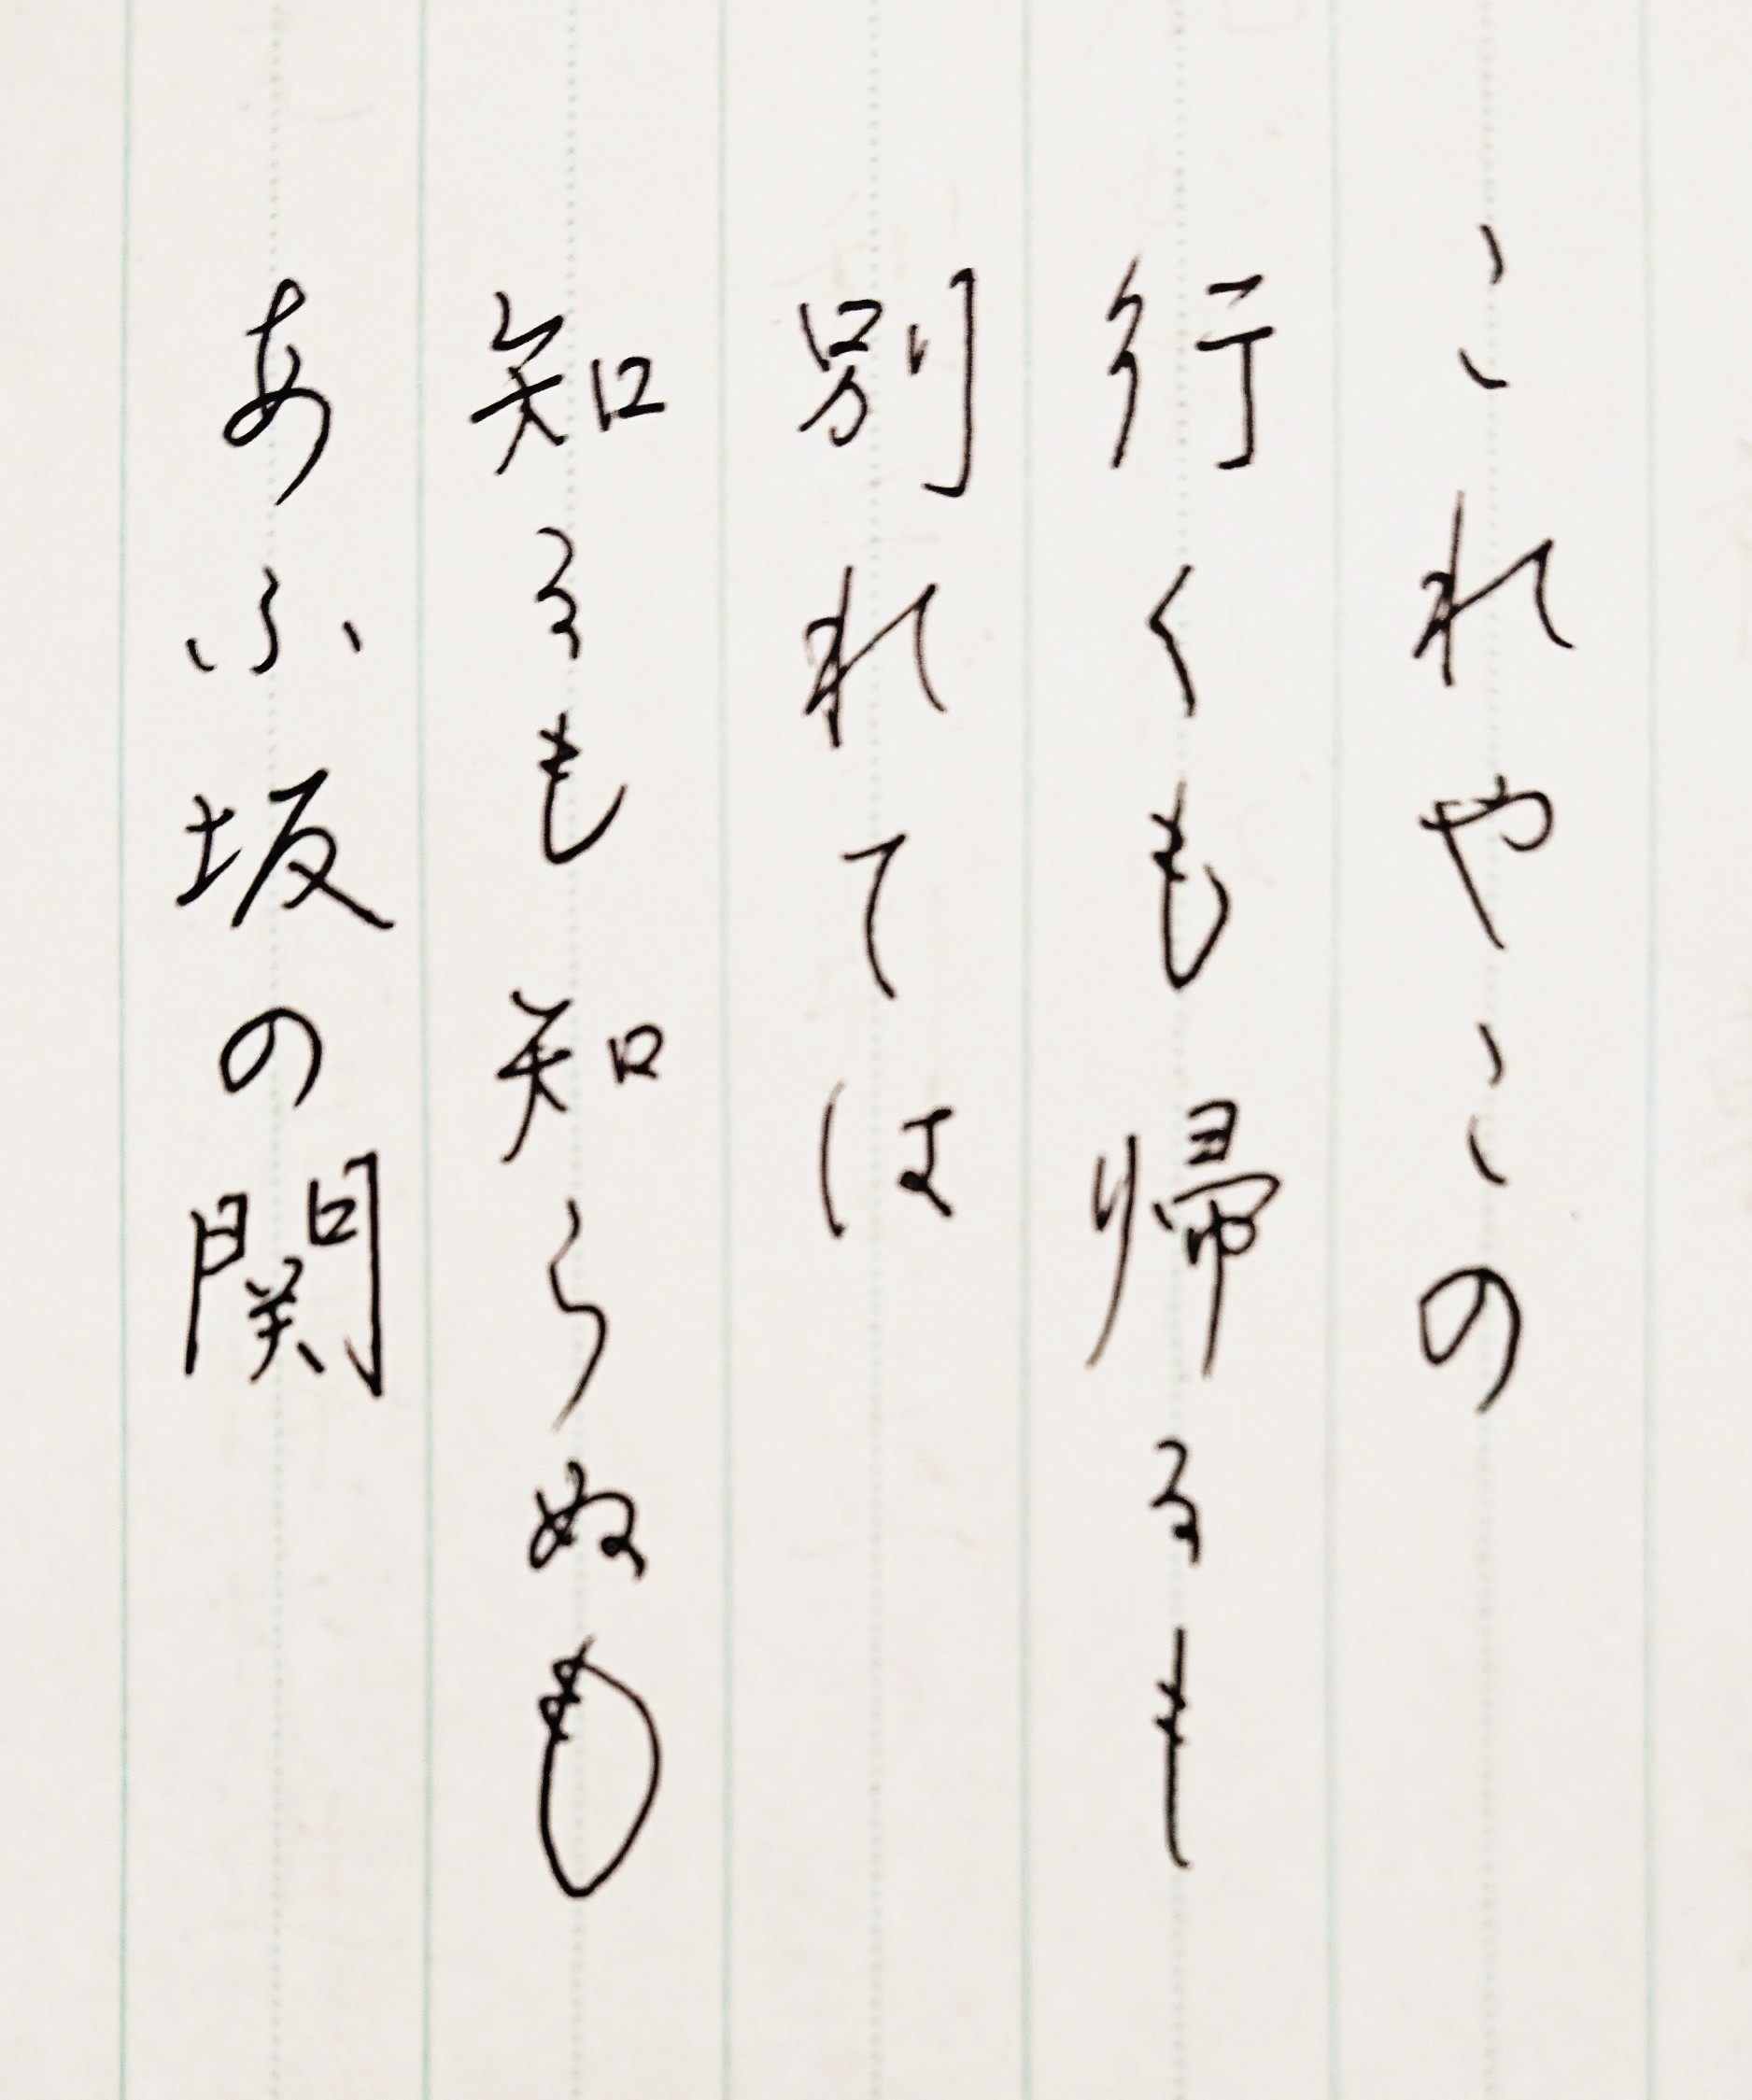 これやこの
行くも帰るも
別れては
知るも知らぬも
あふ坂の関